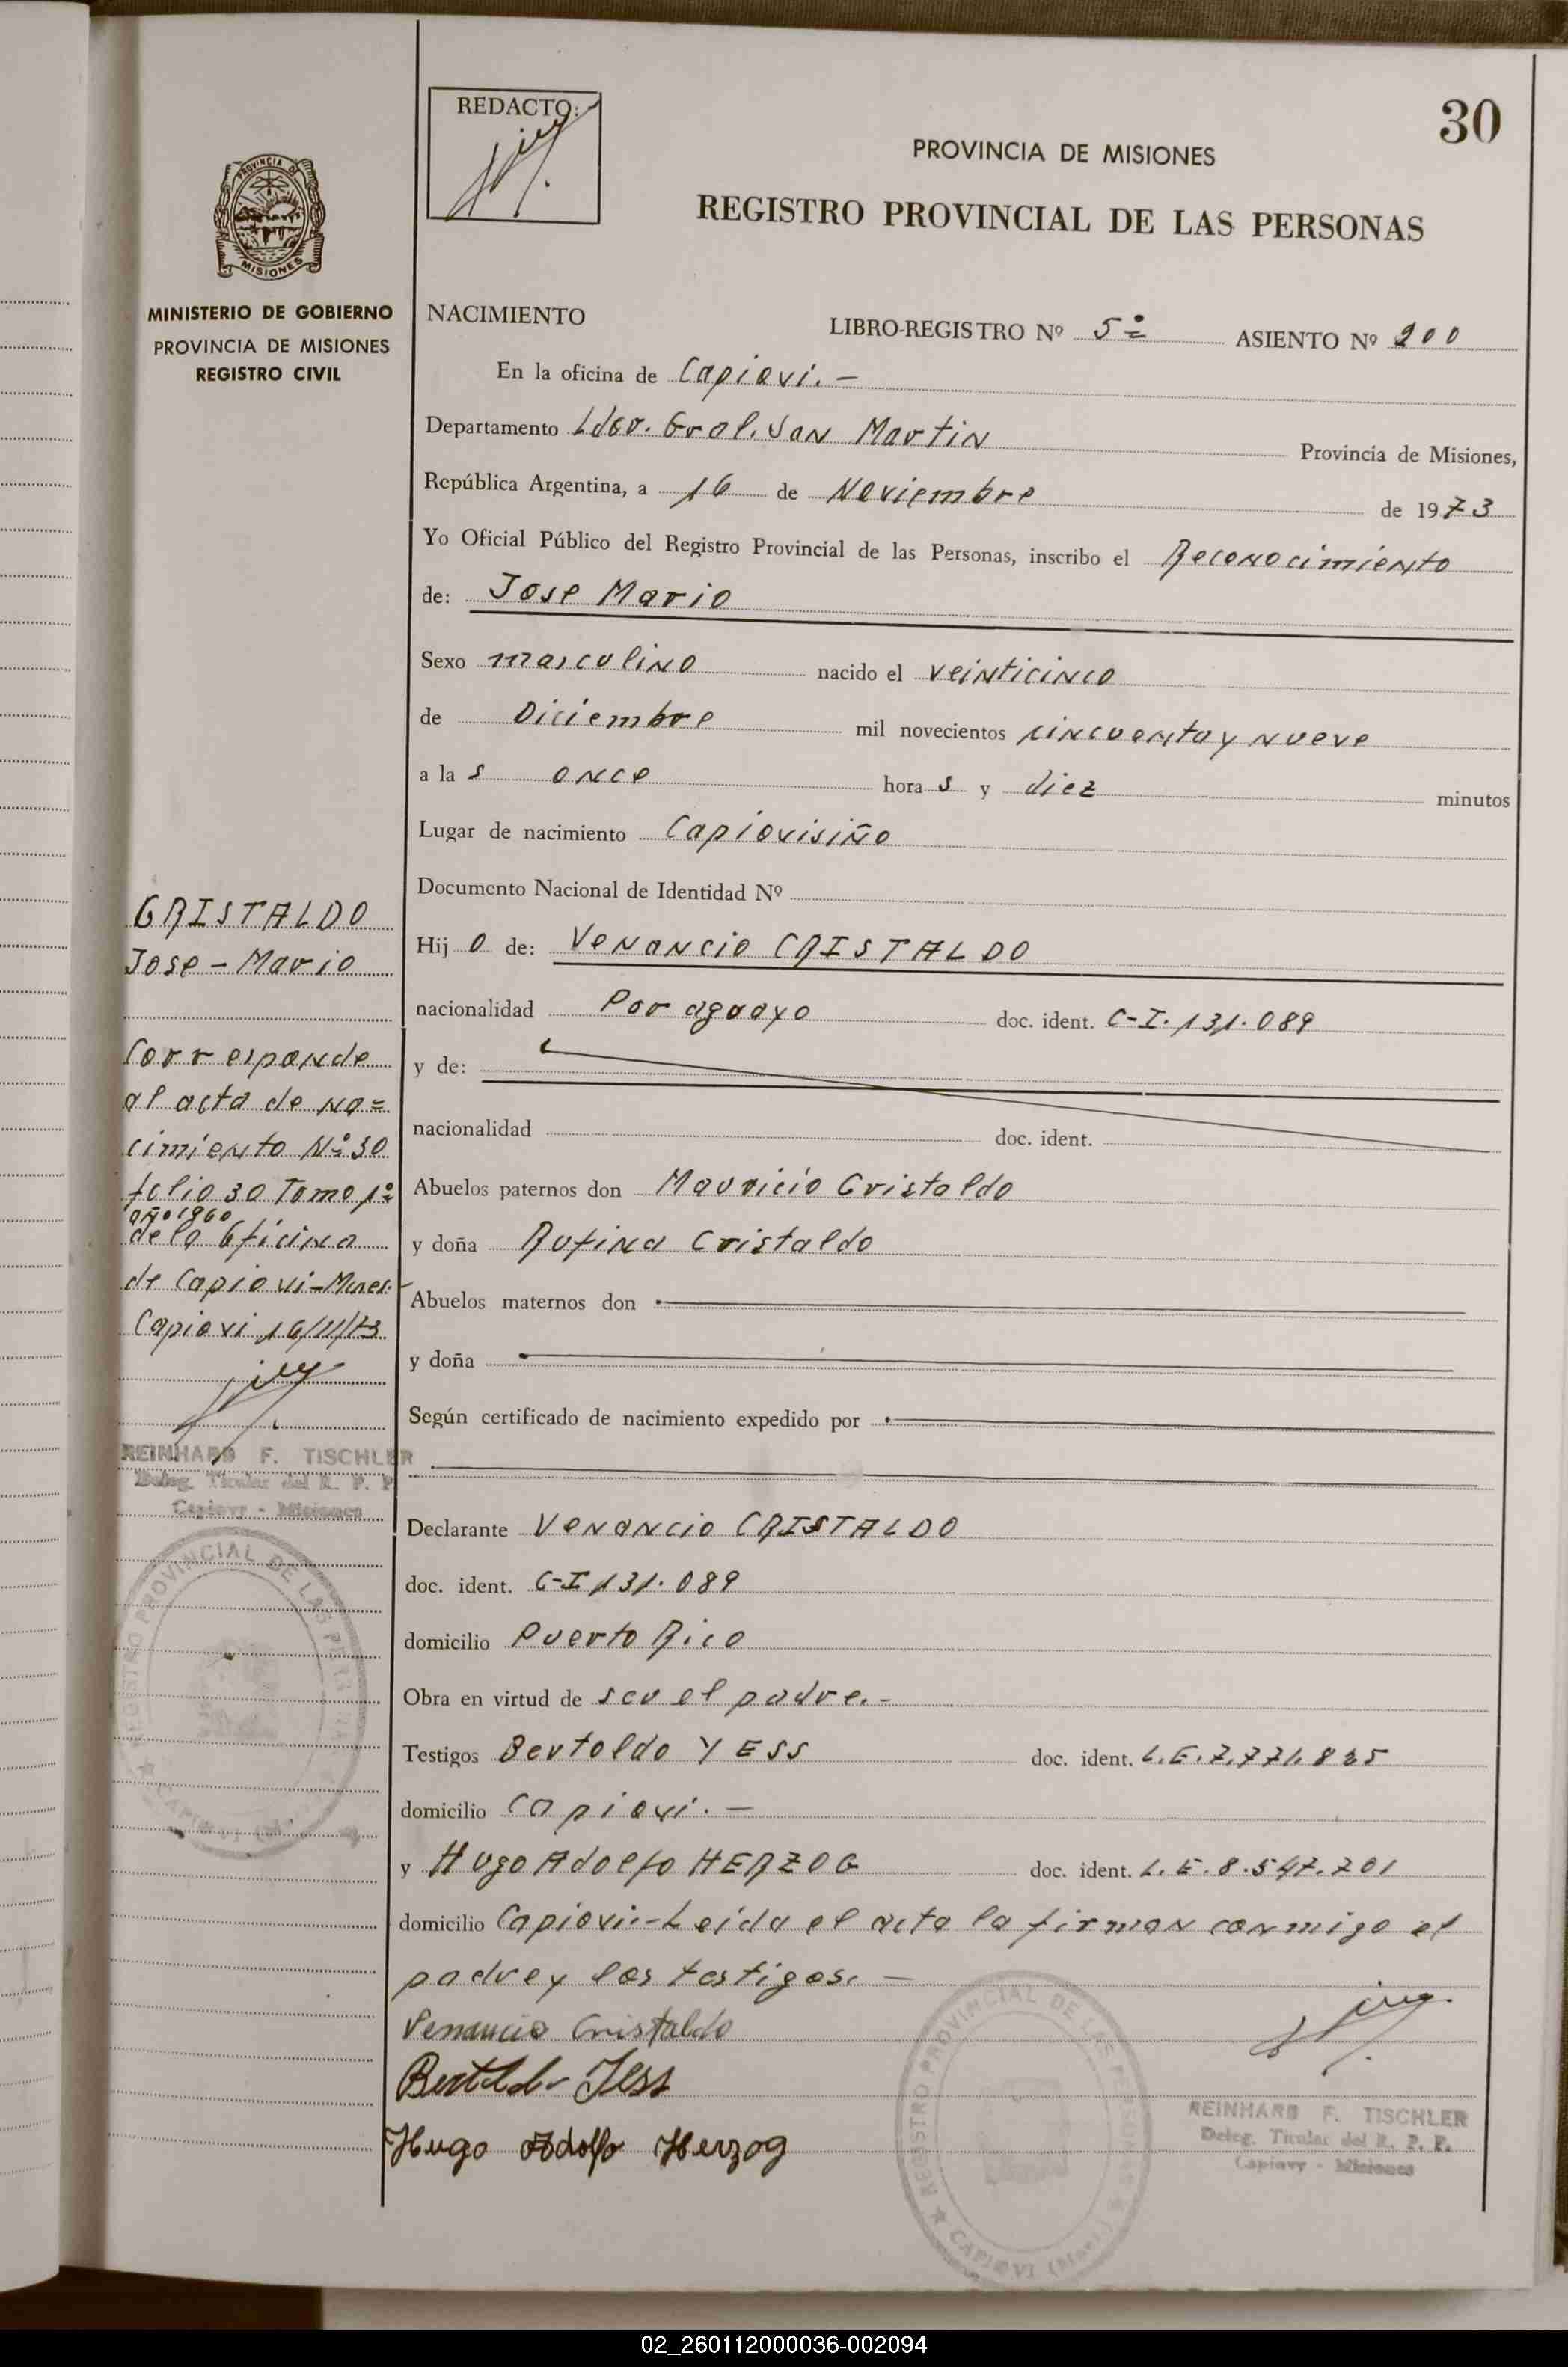 30
REDACTO:
PROVINCIA DE MISIONES
REGISTRO PROVINCIAL DE LAS PERSONAS
PROVINCIA DE
MISIONES
MINISTERIO DE GOBIERNO
PROVINCIA DE MISIONES
REGISTRO CIVIL
NACIMIENTO LIBRO-REGISTRO Nº 5º ASIENTO Nº 200
En la oficina de Capiovi.-
Departamento Ldor. Gral. San Martin Provincia de Misiones,
República Argentina, a 16 de Noviembre de 1973
Yo Oficial Público del Registro Provincial de las Personas, inscribo el Reconocimiento
de: Jose Mario
Sexo masculino nacido el veinticinco
de Diciembre mil novecientos cincuenta y nueve
a la s once hora s y diez minutos
Lugar de nacimiento Capiovisiño
Documento Nacional de Identidad Nº
Hij o de: Venancio CRISTALDO
nacionalidad Paraguayo doc. ident. C-I. 131.089
y de:
nacionalidad doc. ident.
Abuelos paternos don Mauricio Cristaldo
y doña Rufina Cristaldo
Abuelos maternos don
y doña
Según certificado de nacimiento expedido por
Declarante Venancio CRISTALDO
doc. ident. C-I 131.089
domicilio Puerto Rico
Obra en virtud de ser el padre.-
Testigos Bertoldo YESS doc. ident. L.E.7.771.835
domicilio Capiovi.-
y Hugo Adolfo HERZOG doc. ident. L.E.8.547.701
domicilio Capiovi.-Leida el acta la firman conmigo el
padre y los testigos.-
Venancio Cristaldo
Bertoldo Jess
Hugo Adolfo Herzog
REINHARD F. TISCHLER
Deleg. Titular del R. P. P.
Capiovy - Misiones
REGISTRO PROVINCIAL DE LAS PERSONAS
CAPIOVI (Mnes.)
CRISTALDO
Jose-Mario
Corresponde
al acta de na=
cimiento Nº 30
folio 30 Tomo 1º
año 1960
de la Oficina
de Capiovi-Mnes.
Capiovi 16/11/73
REINHARD F. TISCHLER
Deleg. Titular del R. P. P.
Capiovy - Misiones
REGISTRO PROVINCIAL DE LAS PERSONAS
CAPIOVI
02_260112000036-002094